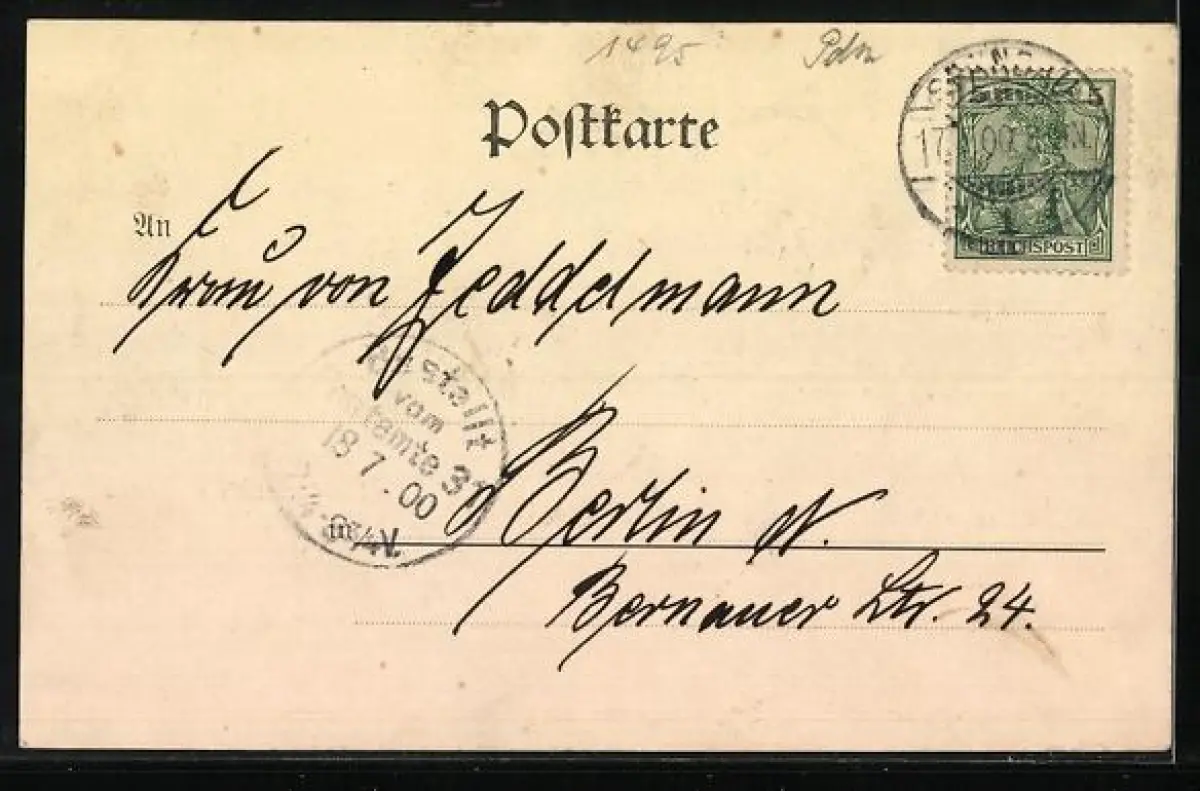 1495 Pdm
Postkarte
SPANDAU
17. 00. 8-9N.
1
REICHSPOST
An
Frau von Zeddelmann
Bestellt
vom
Postamte 31
18 7. 00
V.
in Berlin N.
Bernauer Str. 24.